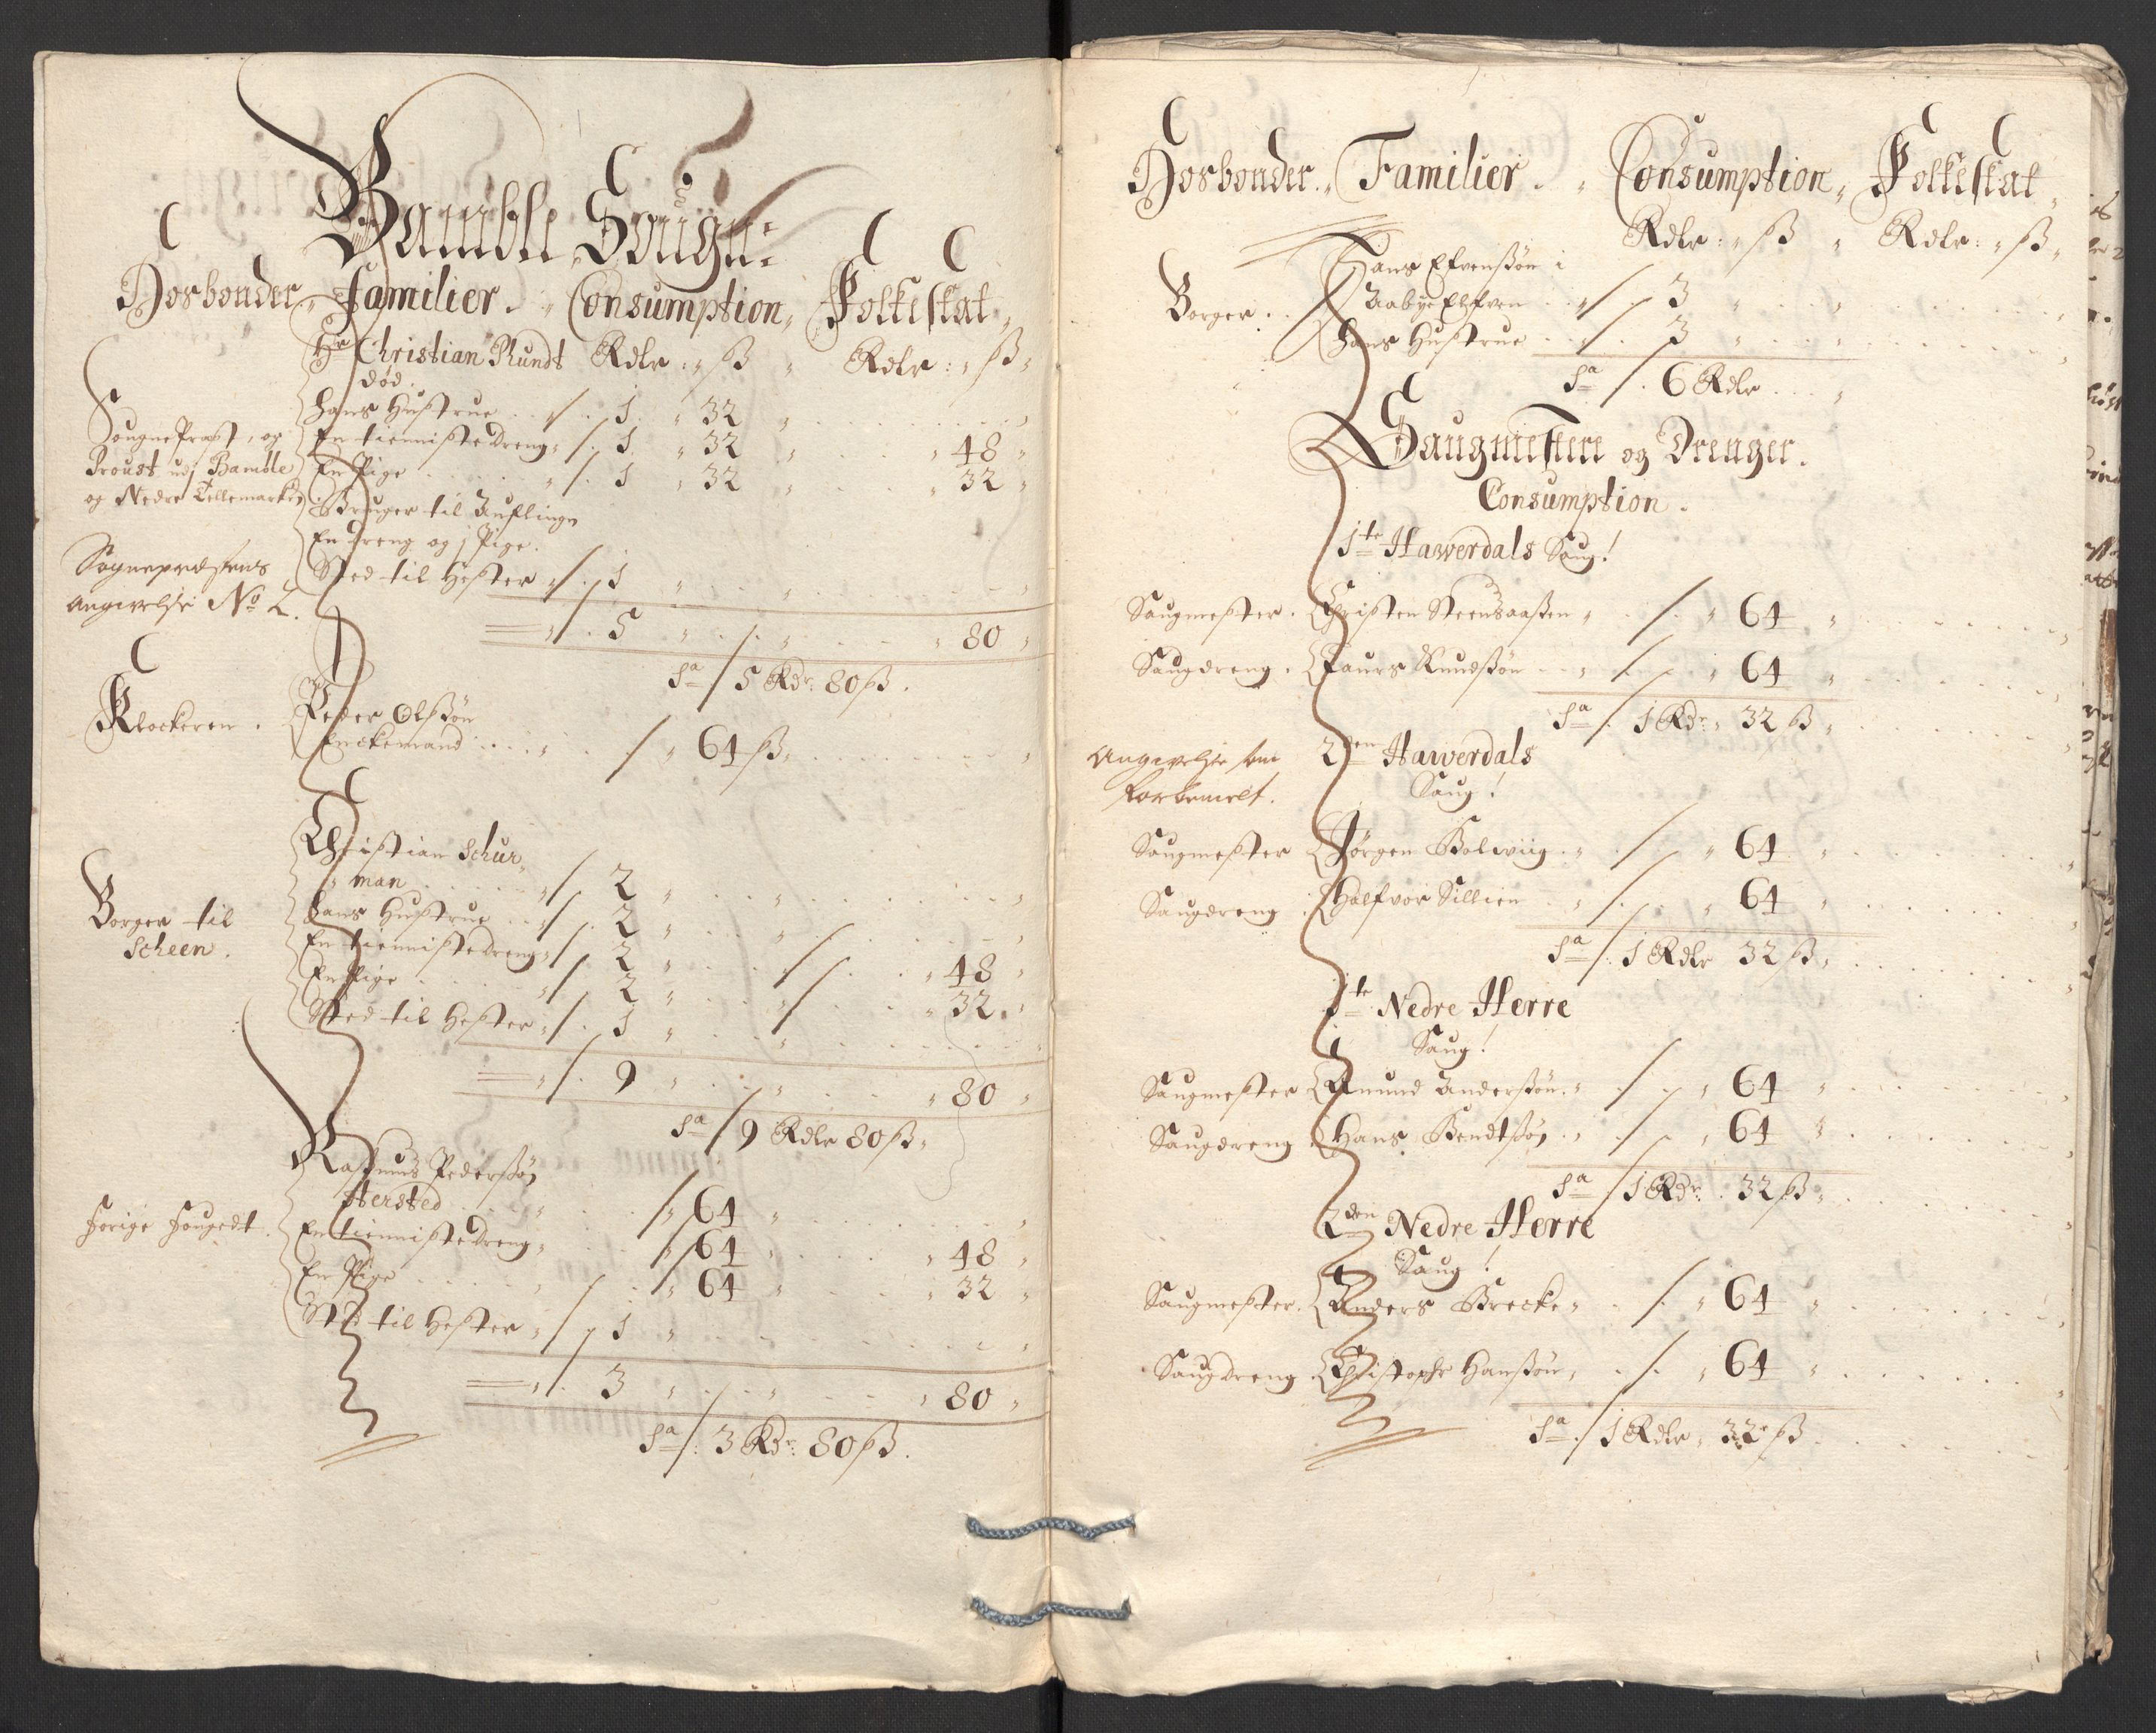 Bamble Sougn:
Hosbonder, Familier. Consumption, Folkeskat,
Rdlr: ß Rdlr: ß
Hr Christian Plundt
død.
Hans Hustrue 1 32
SougnePræst, og En tienniste Dreng 1 32 48
Proust udj Bamble En Pige 1 32 32
og Nedre Tellemarken Bruger til Auflinge
En dreng og j Pige.
Sognepræstens Sted til Hester 1
Angivelse No 2.
5 80
Sa 5 Rdr: 80 ß.
Klockeren. Peder Olßøn
Enckemand 64 ß
Christian Schur
man 2
Borger til Hans Hustrue 2
Scheen. En tienniste dreng 2 48
En Pige 2 32
Sted til Hester 1
9 80
Sa 9 Rdlr 80 ß
Rasmus Pederßøn
Hersted 64
Forige Fougedt. En tienniste Dreng 64 48
En Pige 64 32
Sted til Hester 1
3 80
Sa 3 Rdr: 80 ß.
Hosbonder. Familier. Consumption, Folkeskat
Rdlr: ß Rdlr: ß
Hans Efvenßøn i
Borger. Aabye Elfven 3
Hans Hustrue 3
Sa 6 Rdlr
Saugmestere og Drenger.
Consumption.
1te Hawerdals Saug!
Saugmester. Christen Steensaaßen 64
Saugdreng. Laurs Knudßøn 64
Sa 1 Rdr: 32 ß
Angivelse som 2den Hawerdals
forbemelt. Saug!
Saugmester Jørgen Bolwiig 64
Saugdreng Halfvor Sillien 64
Sa 1 Rdlr 32 ß
1te Nedre Herre
Saug!
Saugmester Anund Anderßøn 64
Saugdreng Hans Bendtßøn 64
Sa 1 Rdr: 32 ß
2den Nedre Herre
Saug!
Saugmester. Anders Brecke 64
Saugdreng Christopher Hanßøn 64
Sa 1 Rdlr 32 ß